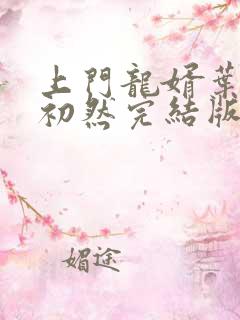 上門龍婿葉
初然完結版
媚途